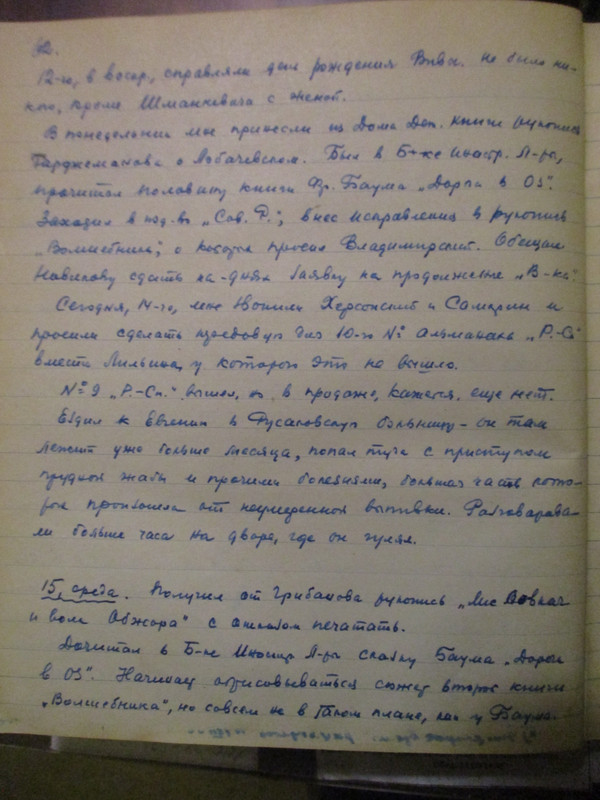 12-го, в воскр, справляли день рождения Вивы. Не было ни-
кого, кроме Шманкевича с женой.
В понедельник мне принесли из Дома Дет. книги рукопись
Тарджеманова о Лобачевском. Был в Б-ке Иностр. Л-ры,
прочитал половину книги Фр. Баума „Дороги в Оз".
Заходил в изд-во „Сов. Р.", внес исправления в рукопись
„Волшебника", о которых просил Владимирский. Обещал
Новикову сдать на-днях заявку на продолжение „В-ка".
Сегодня, 14-го, мне звонили Херсонский и Самарин и
просили сделать кроссворд для 10-го № альманаха „Р.-С."
вместо Лильина, у которого это не вышло.
№ 9 „Р.-Сп." вышел, но в продаже, кажется, еще нет.
Ездил к Евгению в Русаковскую больницу – он там
лежит уже больше месяца, попал туда с приступом
грудной жабы и прочими болезнями, большая часть кото-
рых произошла от неумеренной выпивки. Разговарива-
ли больше часа на дворе, где он гулял.
15, среда. Получил от Грибанова рукопись „Лис Вовкач
и волк Обжора" с отказом печатать.
Дочитал в Б-ке Иностр Л-ры сказку Баума „Дороги
в Оз". Начинает обрисовываться сюжет второй книги
„Волшебника", но совсем не в таком плане, как у Баума.